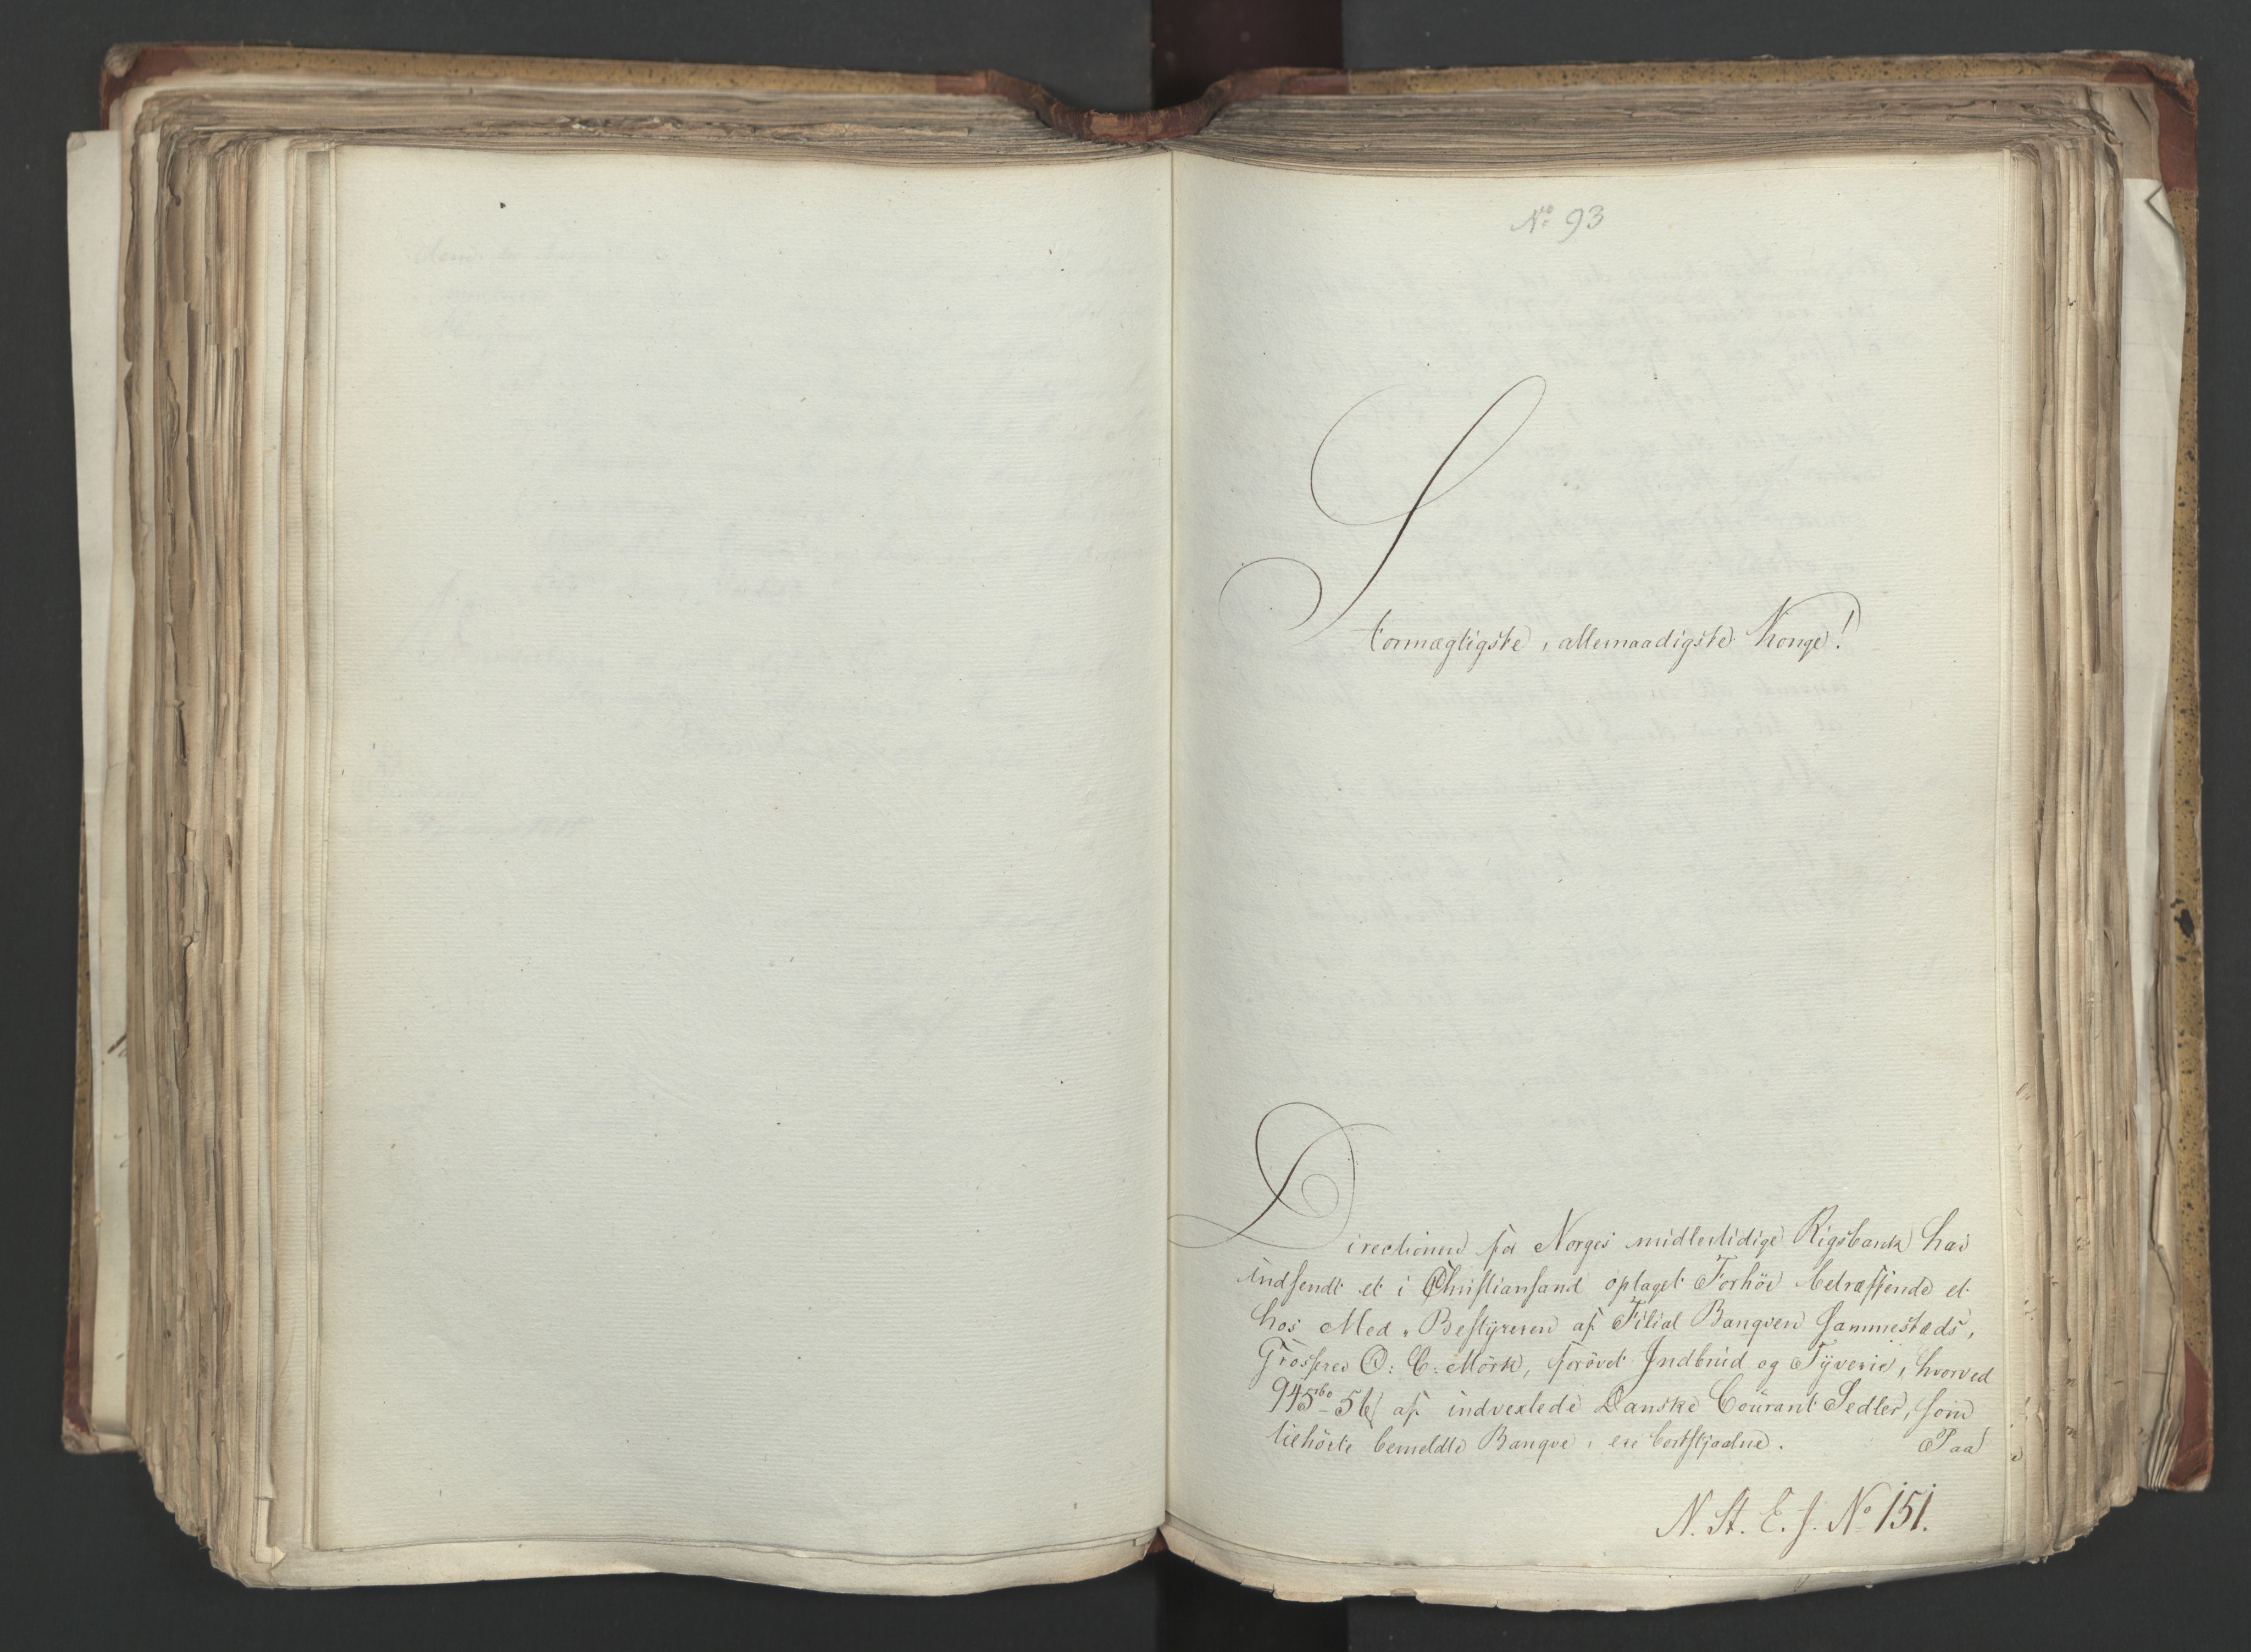 No 93
Stormægtigste, allernaadigste Konge!
Directionen for Norges midlertidige Rigsbank har
indsendt et i Christiansand optaget Forhör betræffende et
hos Med-Bestyreren af Filial Banqven sammesteds,
Grosserer O: C: Mörk, forövet Indbrud og Tyverie, hvorved
945 rbd 5 af indvexlede Danske Courant Sedler, som
tilhörte bemeldte Banqve, ere bortstjaalne. Paa
N. St. E. J. No 151.